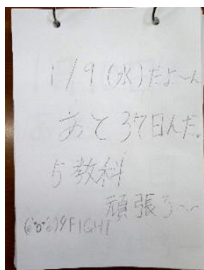 1/9(水)だよ〜ん
あと37日んだ。
5教科
頑張ろ〜〜
FIGHT